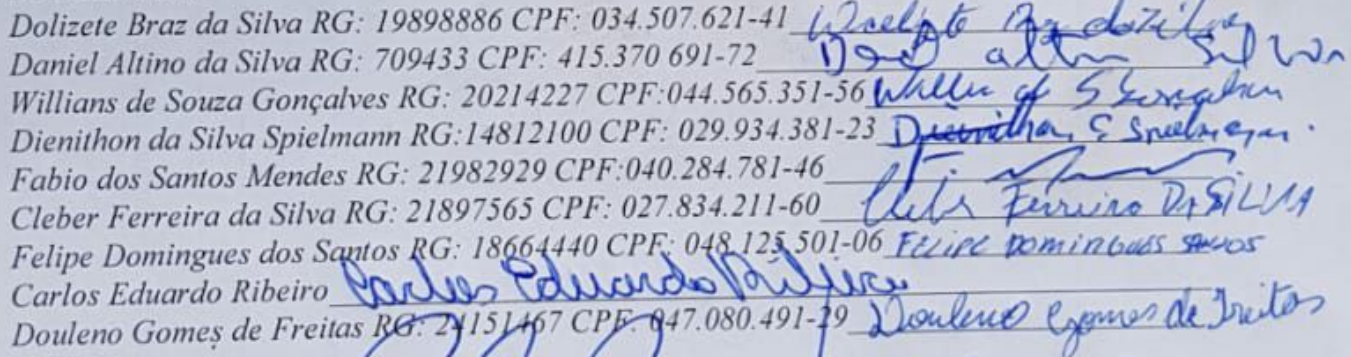 Dolizete Braz da Silva RG: 19898886 CPF: 034.507.621-41
Daniel Altino da Silva RG: 709433 CPF: 415.370 691-72
Willians de Souza Gonçalves RG: 20214227 CPF:044.565.351-56
Dienithon da Silva Spielmann RG:14812100 CPF: 029.934.381-23
Fabio dos Santos Mendes RG: 21982929 CPF:040.284.781-46
Cleber Ferreira da Silva RG: 21897565 CPF: 027.834.211-60 Cleber Ferreira DA SILVA
Felipe Domingues dos Santos RG: 18664440 CPF: 048.125.501-06 FELIPE DOMINGUES
Carlos Eduardo Ribeiro Carlos Eduardo Ribeiro
Douleno Gomes de Freitas RG: 24151467 CPF: 047.080.491-29 Douleno Gomes de Freitas